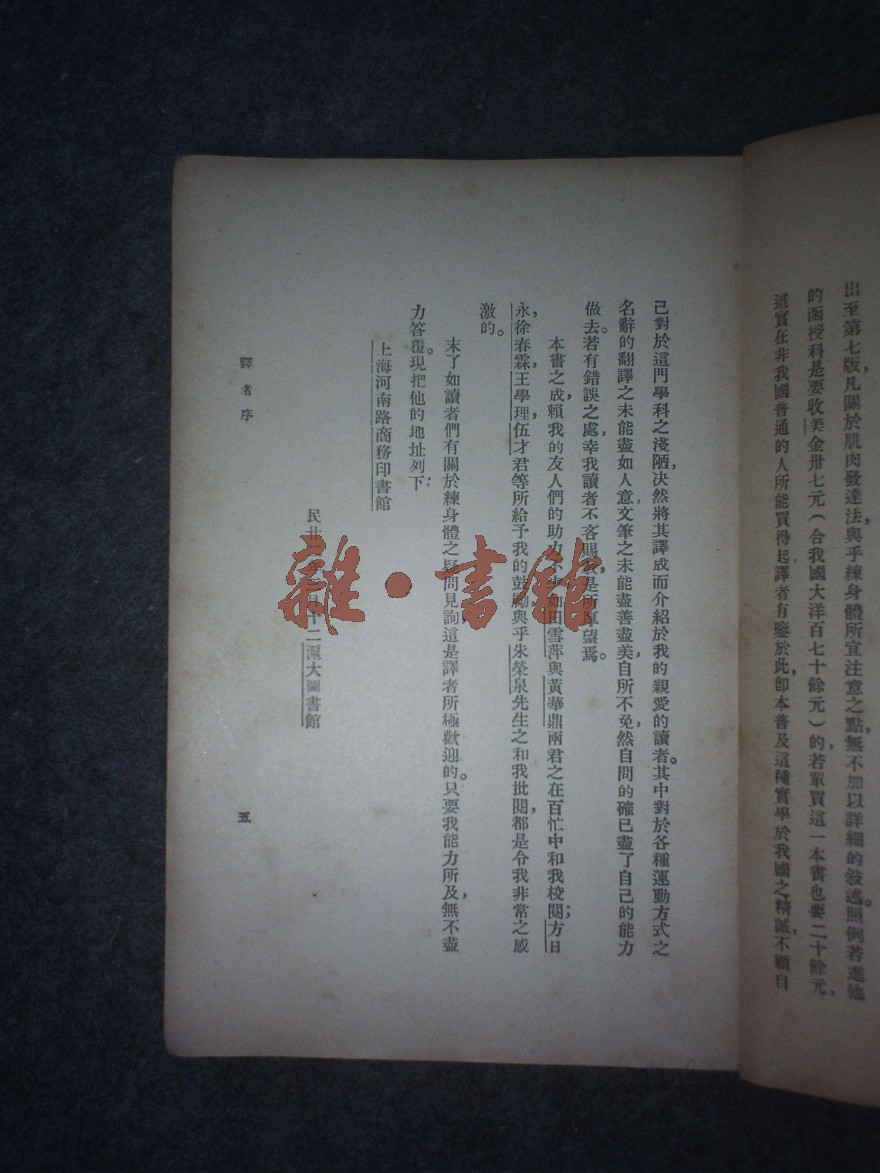 出至第七版，凡關於肌肉發達法與乎練身體所宜注意之點，無不加以詳細的敍述。照例若進他
的函授科是要收美金卅七元（合我國大洋百七十餘元）的，若單買這一本書也要二十餘元，
這實在非我國普通的人所能買得起，譯者有鑒於此，卽本普及這種實學於我國之精誠，不顧自
己對於這門學科之淺陋，決然將其譯成而介紹於我的親愛的讀者。其中對於各種運動方式之
名辭的翻譯之未能盡如人意，文筆之未能盡善盡美，自所不免，然自問的確已盡了自己的能力
做去。若有錯誤之處，幸我讀者不吝賜 是所厚望焉。
本書之成，賴我的友人們的助力不 如田雪萍與黃華鼎兩君之在百忙中和我校閱；方日
永，徐春霖，王學理，伍才君等所給予我的鼓勵與乎朱榮泉先生之和我批閱，都是令我非常之感
激的。
末了如讀者們有關於練身體之疑問見詢，這是譯者所極歡迎的。只要我能力所及，無不盡
力答覆。現把他的地址列下：
上海河南路商務印書館
民廿 月十二滬大圖書館
譯者序
五
雜·書館